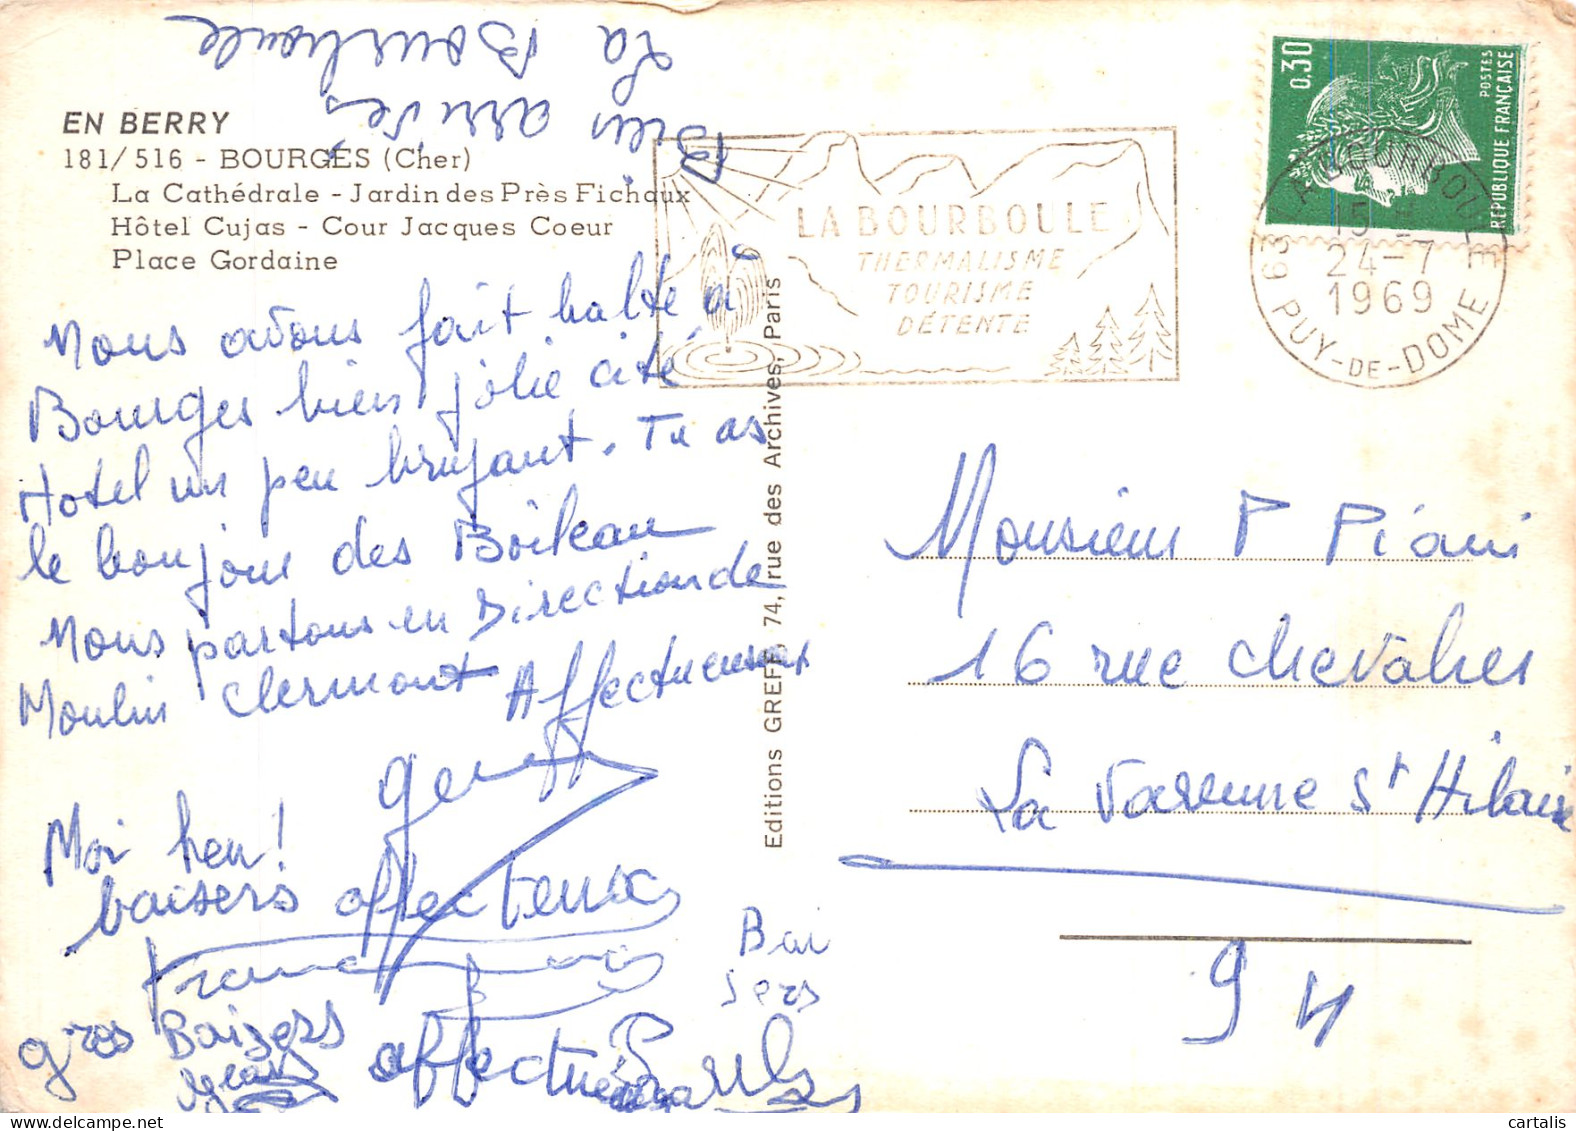 Bien arrivés
La Bourboule
EN BERRY
181/516 - BOURGES (Cher)
La Cathédrale - Jardin des Près Fichaux
Hôtel Cujas - Cour Jacques Coeur
Place Gordaine
Nous avons fait halte à
Bourges bien jolie cité
Hotel un peu bruyant. Tu as
le bonjour des Boileau
Nous partons en Direction de
Moulin Clermont Affectueusement
Moi heu!
baisers affectueux
gros Baisers
Jean
affectueux
Bai
sers
Editions GREFF, 74, rue des Archives, Paris
LA BOURBOULE
THERMALISME
TOURISME
DÉTENTE
0,30
POSTES
REPUBLIQUE FRANÇAISE
LA BOURBOULE
24-7
1969
63 PUY-DE-DOME
Monsieur P Piani
16 rue Chevalier
La Varenne St Hilaire
94
cartalis